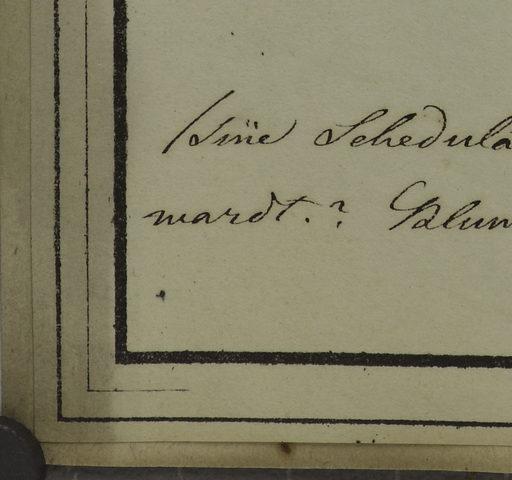 (sine Schedula
wardt.? Blum